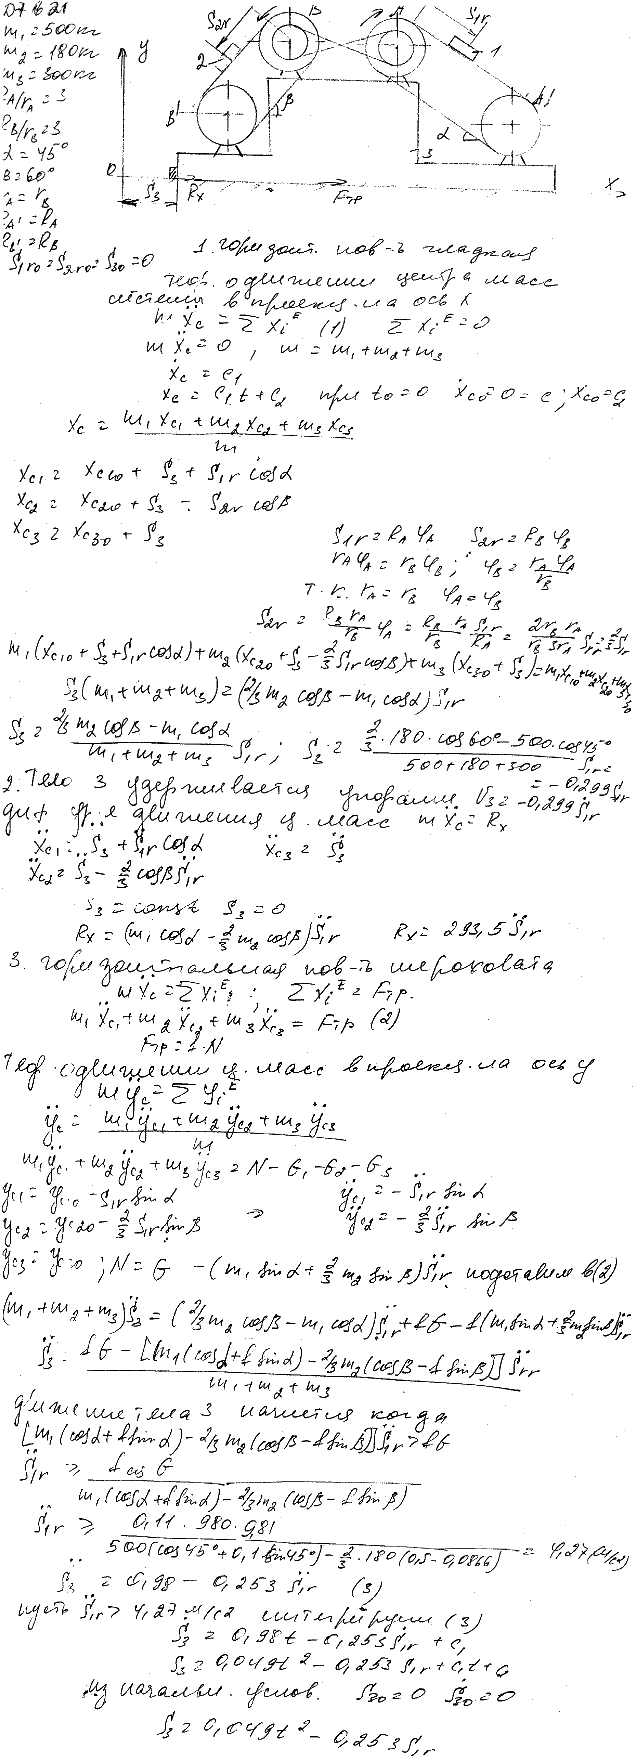 D7 В 21
m₁=500кг
m₂=180кг
m₃=300кг
RA/rA=3
RB/rB=3
α=45°
β=60°
rA=rB
RA'=RA
RB'=RB
S1r0=S2r0=S30=0
y
S2r
2
B
S1r
1
A'
B'
β
α
3
0
S3
Rx
Fтр
X
1. Горизонт. пов-ть гладкая
Теор. о движении центра масс
системы в проекц. на ось X
m ẍc = Σ XiE (1) Σ XiE = 0
m ẍc = 0, m = m₁+m₂+m₃
ẋc = C₁
xc = C₁t + C₂ при t₀=0
xc = (m₁xc1 + m₂xc2 + m₃xc3)/m
xc1 = xc10 + S3 + S1r cosα
xc2 = xc20 + S3 − S2r cosβ
xc3 = xc30 + S3
S1r = RA φA S2r = RB φB
rAφA = rBφB; φB = rAφA/rB
т.к. rA = rB φA = φB
m₁(xc10 + S3 + S1r cosα) + m₂(xc20 + S3 − 2/3 S1r cosβ) + m₃(xc30 + S3) = m₁xc10 + m₂xc20 + m₃xc30
S3(m₁+m₂+m₃) = (2/3 m₂ cosβ − m₁ cosα) S1r
S3 = (2/3 m₂ cosβ − m₁ cosα)/(m₁+m₂+m₃) S1r; S3 = (2/3·180·cos60° − 500·cos45°)/(500+180+300) S1r =
= −0,299 S1r
2. Тело 3 удерживается упорами V3 = −0,299 Ṡ1r
диф ур. движения ц. масс m ẍc = Rx
ẍc1 = S̈3 + S̈1r cosα ẍc3 = S̈3
ẍc2 = S̈3 − 2/3 cosβ S̈1r
S3 = const S̈3 = 0
Rx = (m₁ cosα − 2/3 m₂ cosβ) S̈1r Rx = 293,5 S̈1r
3. Горизонтальная пов-ть шероховата
m ẍc = Σ XiE; Σ XiE = Fтр.
m₁ẍc1 + m₂ẍc2 + m₃ẍc3 = Fтр (2)
Fтр = f·N
Теор. о движении ц. масс в проекц. на ось y
m ÿc = Σ YiE
ÿc = (m₁ÿc1 + m₂ÿc2 + m₃ÿc3)/m
m₁ÿc1 + m₂ÿc2 + m₃ÿc3 = N − G₁ − G₂ − G₃
yc1 = yc10 − S1r sinα ⇒ ÿc1 = −S̈1r sinα
yc2 = yc20 − 2/3 S1r sinβ ÿc2 = −2/3 S̈1r sinβ
yc3 = yc30; N = G − (m₁ sinα + 2/3 m₂ sinβ) S̈1r подставим в (2)
(m₁+m₂+m₃) S̈3 = (2/3 m₂ cosβ − m₁ cosα) S̈1r + fG − f(m₁ sinα + 2/3 m₂ sinβ) S̈1r
S̈3 = (fG − [m₁(cosα + f sinα) − 2/3 m₂(cosβ − f sinβ)] S̈1r)/(m₁+m₂+m₃)
движение тела 3 начнется когда
[m₁(cosα + f sinα) − 2/3 m₂(cosβ − f sinβ)] S̈1r > fG
S̈1r ≥ f G/(m₁(cosα + f sinα) − 2/3 m₂(cosβ − f sinβ))
S̈1r ≥ 0,11·980·9,81/(500(cos45° + 0,1 sin45°) − 2/3·180(0,5 − 0,0866)) = 4,27 (м/с2)
S̈3 = 0,98 − 0,253 S̈1r (3)
пусть S̈1r > 4,27 м/с2 интегрируем (3)
Ṡ3 = 0,98t − 0,253 Ṡ1r + C₁
S3 = 0,049t² − 0,253 S1r + C₁t + C₂
Из начальн. услов. S30 = 0 Ṡ30 = 0
S3 = 0,049t² − 0,253 S1r